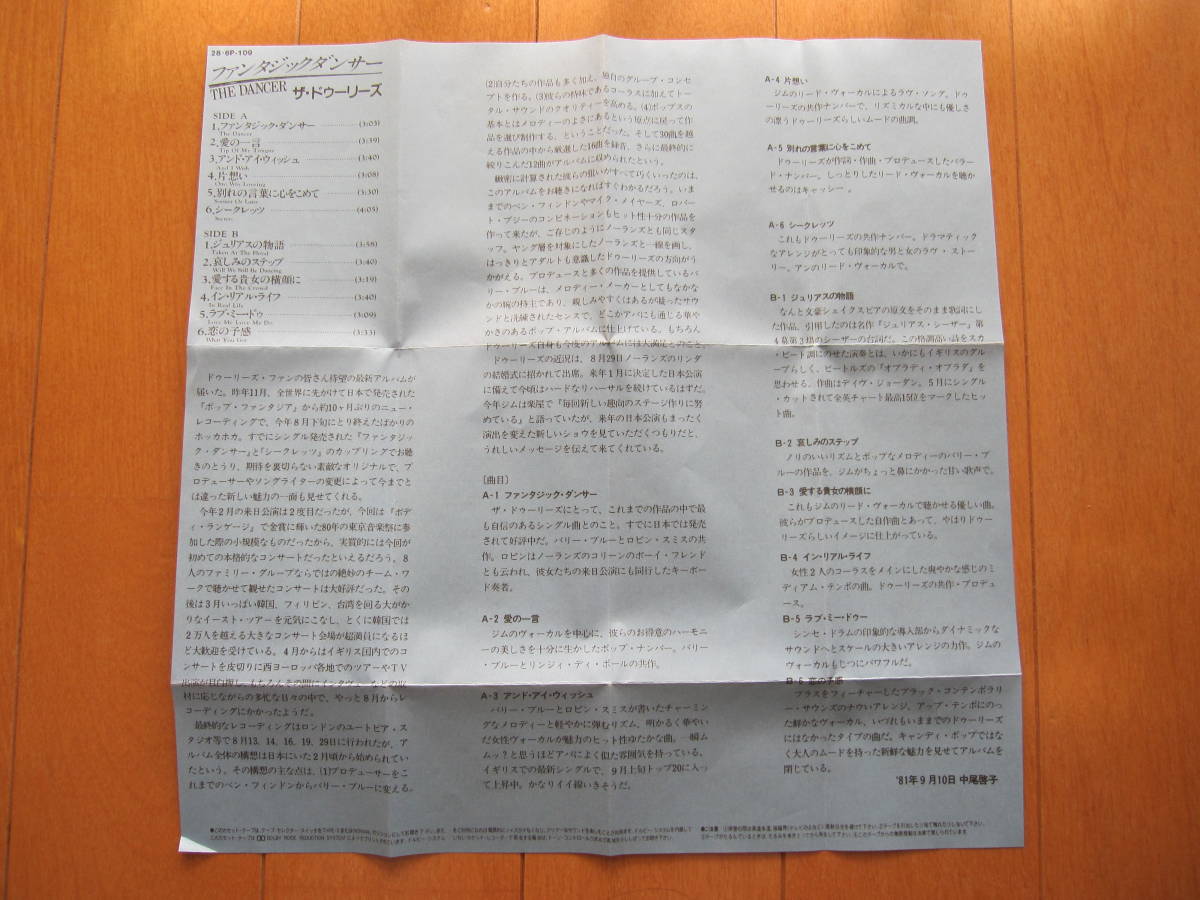 28・6P-109
ファンタジックダンサー
THE DANCER ザ・ドゥーリーズ
SIDE A
1.ファンタジック・ダンサー (3:05)
The Dancer
2.愛の一言 (3:39)
Tip Of My Tongue
3.アンド・アイ・ウィッシュ (3:40)
And I Wish
4.片想い (3:08)
One Way Loving
5.別れの言葉に心をこめて (3:30)
Sooner Or Later
6.シークレッツ (4:05)
Secrets
SIDE B
1.ジュリアスの物語 (3:58)
Taken At The Flood
2.哀しみのステップ (3:40)
Will We Still Be Dancing
3.愛する貴女の横顔に (3:19)
Face In The Crowd
4.イン・リアル・ライフ (3:40)
In Real Life
5.ラブ・ミー・ドゥ (3:09)
Love Me Love Me Do
6.恋の予感 (3:33)
What You Got
ドゥーリーズ・ファンの皆さん待望の最新アルバムが
届いた。昨年11月、全世界に先がけて日本で発売された
『ポップ・ファンタジア』から約10ヶ月ぶりのニュー・
レコーディングで、今年8月下旬にとり終えたばかりの
ホッカホカ。すでにシングル発売された『ファンタジッ
ク・ダンサー』と『シークレッツ』のカップリングでお聴
きのとうり、期待を裏切らない素敵なオリジナルで、プ
ロデューサーやソングライターの変更によって今までと
は違った新しい魅力の一面も見せてくれる。
今年2月の来日公演は2度目だったが、今回は『ボディ
・ランゲージ』で金賞に輝いた80年の東京音楽祭に参
加した際の小規模なものだったから、実質的には今回が
初めての本格的なコンサートだったといえるだろう。8
人のファミリー・グループならではの絶妙のチーム・ワ
ークで聴かせて観せたコンサートは大好評だった。その
後は3月いっぱい韓国、フィリピン、台湾を回る大がか
りなイースト・ツアーを元気にこなし、とくに韓国では
2万人を越える大きなコンサート会場が超満員になるほ
ど大歓迎を受けている。4月からはイギリス国内でのコ
ンサートを皮切りに西ヨーロッパ各地でのツアーやTV
出演が目白押し、もちろんその間にインタヴューなどの取
材に応じながらの多忙な日々の中で、やっと8月からレ
コーディングにかかったようだ。
最終的なレコーディングはロンドンのユートピア・ス
タジオ等で8月13、14、16、19、29日に行われたが、ア
ルバム全体の構想は日本にいた2月頃から始められてい
たという。その構想の主な点は、(1)プロデューサーをこ
れまでのベン・フィンドンからバリー・ブルーに変える。
(2)自分たちの作品も多く加え、独自のグループ・コンセ
プトを作る。(3)彼らの特味であるコーラスに加えてトー
タル・サウンドのクオリティーを高める。(4)ポップスの
基本とはメロディーのよさにあるという原点に戻って作
品を選び制作する、ということだった。そして30曲を越
える作品の中から厳選した16曲を録音、さらに最終的に
絞りこんだ12曲がアルバムに収められたという。
緻密に計算された彼らの狙いがすべて巧くいったのは、
このアルバムをお聴きになればすぐわかるだろう。いま
までのベン・フィンドンやマイク・メイヤーズ、ロバー
ト・プジーのコンビネーションもヒット性十分の作品を
作って来たが、ご存じのようにノーランズとも同じスタ
ッフ。ヤング層を対象にしたノーランズと一線を画し、
はっきりとアダルトも意識したドゥーリーズの方向がう
かがえる。プロデュースと多くの作品を提供しているバ
リー・ブルーは、メロディー・メーカーとしてもなかな
かの腕の持主であり、親しみやすくはあるが凝ったサウ
ンドと洗練されたセンスで、どこかアバにも通じる華や
かさのあるポップ・アルバムに仕上げている。もちろん
ドゥーリーズ自身も今度のアルバムには大満足とのこと。
ドゥーリーズの近況は、8月29日ノーランズのリンダ
の結婚式に招かれて出席。来年1月に決定した日本公演
に備えて今頃はハードなリハーサルを続けているはずだ。
今年ジムは楽屋で「毎回新しい趣向のステージ作りに努
めている」と語っていたが、来年の日本公演もまったく
演出を変えた新しいショウを見ていただくつもりだと、
うれしいメッセージを伝えて来てくれている。
〔曲目〕
A-1 ファンタジック・ダンサー
ザ・ドゥーリーズにとって、これまでの作品の中で最
も自信のあるシングル曲とのこと。すでに日本では発売
されて好評中だ。バリー・ブルーとロビン・スミスの共
作。ロビンはノーランズのコリーンのボーイ・フレンド
とも云われ、彼女たちの来日公演にも同行したキーボー
ド奏者。
A-2 愛の一言
ジムのヴォーカルを中心に、彼らのお得意のハーモニ
ーの美しさを十分に生かしたポップ・ナンバー。バリー
・ブルーとリンジィ・ディ・ポールの共作。
A-3 アンド・アイ・ウィッシュ
バリー・ブルーとロビン・スミスが書いたチャーミン
グなメロディーと軽やかに弾むリズム、明かるく華やい
だ女性ヴォーカルが魅力のヒット性ゆたかな曲。一瞬ム
ムッ?と思うほどアバによく似た雰囲気を持っている。
イギリスでの最新シングルで、9月上旬トップ20に入っ
て上昇中。かなりイイ線いきそうだ。
A-4 片想い
ジムのリード・ヴォーカルによるラヴ・ソング。ドゥ
ーリーズの共作ナンバーで、リズミカルな中にも優しさ
の漂うドゥーリーズらしいムードの曲調。
A-5 別れの言葉に心をこめて
ドゥーリーズが作詞・作曲・プロデュースしたバラー
ド・ナンバー。しっとりしたリード・ヴォーカルを聴か
せるのはキャッシー。
A-6 シークレッツ
これもドゥーリーズの共作ナンバー。ドラマティック
なアレンジがとっても印象的な男と女のラヴ・ストー
リー。アンのリード・ヴォーカルで。
B-1 ジュリアスの物語
なんと文豪シェイクスピアの原文をそのまま歌詞にし
た作品。引用したのは名作『ジュリアス・シーザー』第
4幕第3場のシーザーの台詞だ。この格調高い詩をスカ
・ビート調にのせた演奏とは、いかにもイギリスのグル
ープらしく、ビートルズの『オブラディ・オブラダ』を
思わせる。作曲はデイヴ・ジョーダン。5月にシングル
・カットされて全英チャート最高15位をマークしたヒッ
ト曲。
B-2 哀しみのステップ
ノリのいいリズムとポップなメロディーのバリー・ブ
ルーの作品を、ジムがちょっと鼻にかかった甘い歌声で。
B-3 愛する貴女の横顔に
これもジムのリード・ヴォーカルで聴かせる優しい曲。
彼らがプロデュースした自作曲とあって、やはりドゥー
リーズらしいイメージに仕上がっている。
B-4 イン・リアル・ライフ
女性2人のコーラスをメインにした爽やかな感じのミ
ディアム・テンポの曲。ドゥーリーズの共作・プロデュ
ース。
B-5 ラブ・ミー・ドゥー
シンセ・ドラムの印象的な導入部からダイナミックな
サウンドへとスケールの大きいアレンジの力作。ジムの
ヴォーカルもじつにパワフルだ。
B-6 恋の予感
ブラスをフィーチャーしたブラック・コンテンポラリ
ー・サウンズのナウいアレンジ、アップ・テンポにのっ
た鮮かなヴォーカル、いづれもいままでのドゥーリーズ
にはなかったタイプの曲だ。キャンディ・ポップではな
く大人のムードを持った新鮮な魅力を見せてアルバムを
閉じている。
'81年9月10日 中尾啓子